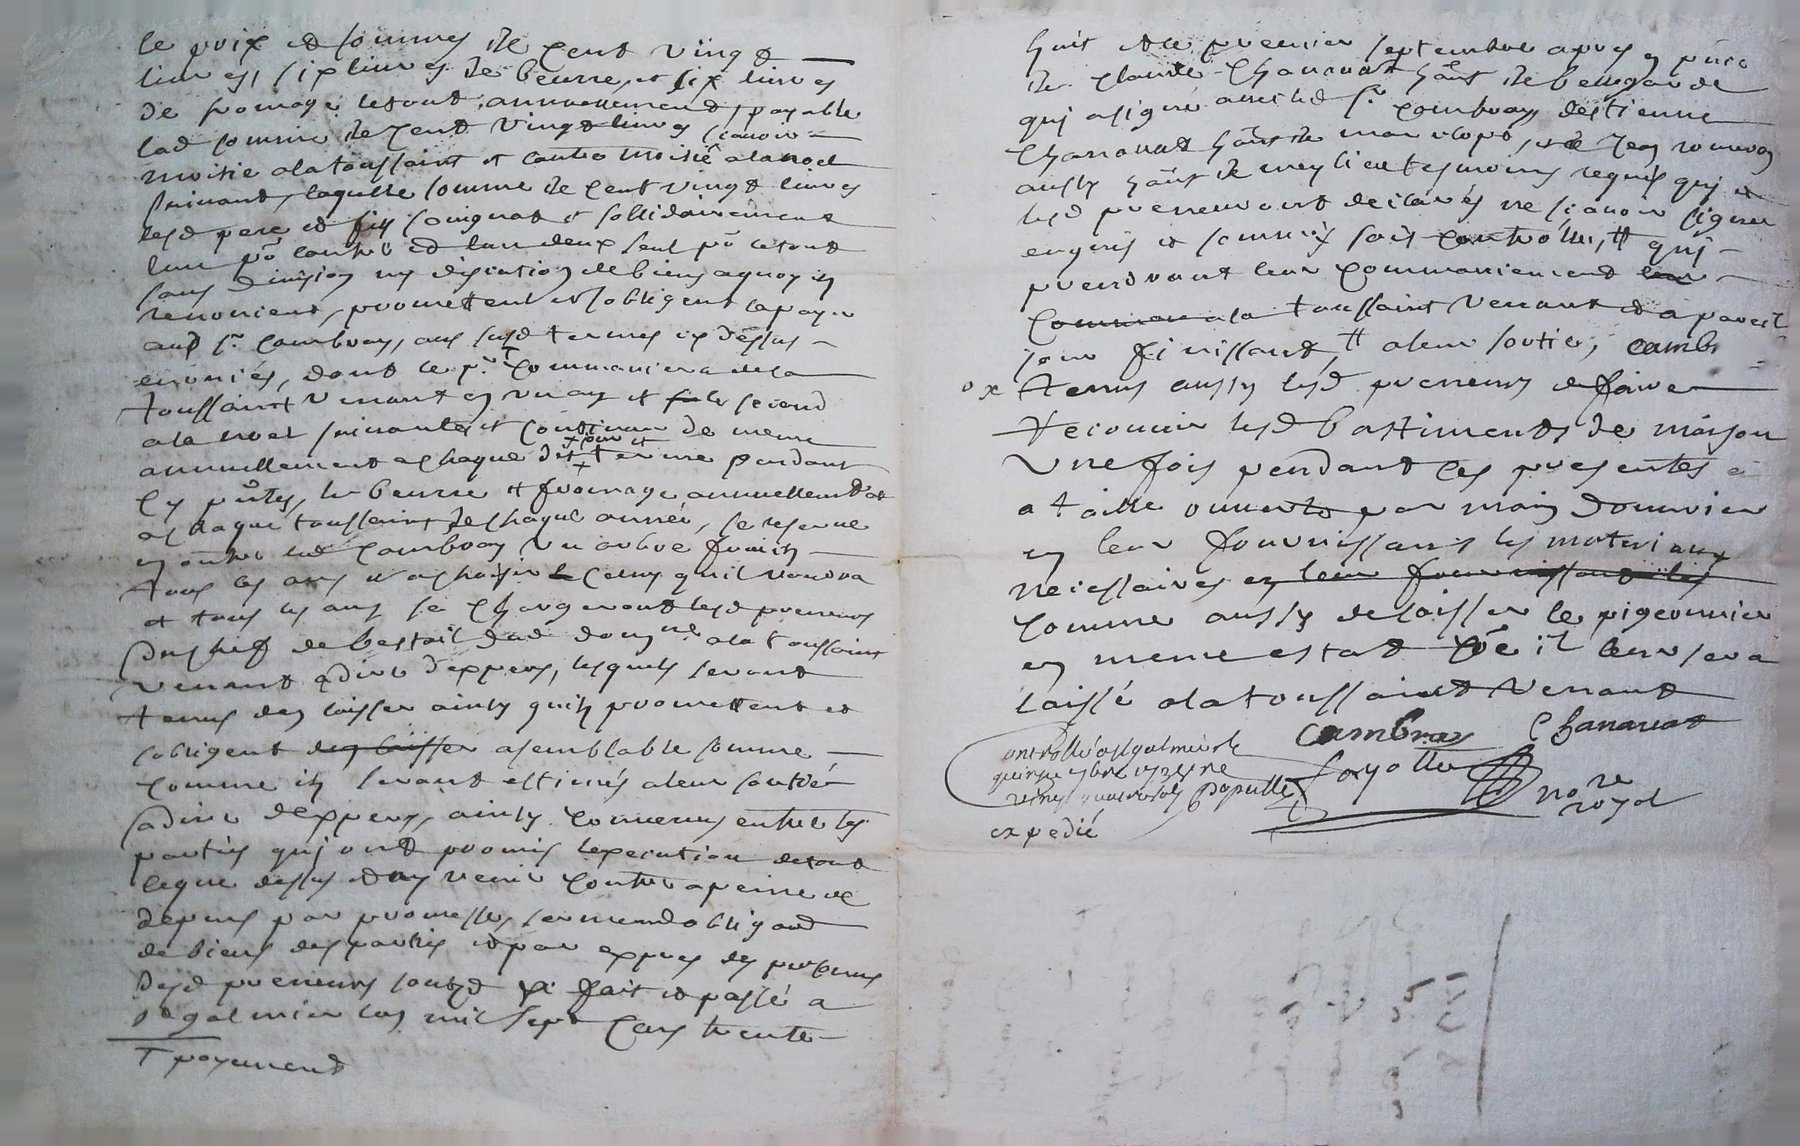 le prix et sommes de cent vingt
livres, six livres de beurre, et six livres
de fromage le tout annuellement, payable
lad somme de cent vingt livres scavoir
moitie a la toussaint et lautre moitié a la noel
suivant, laquelle somme de cent vingt livres
lesd pere et fils conjoint et sollidairement
lun po lautre et lun deux seul po le tout
sans division ny discution de biens a quoy ils
renoncent, promettent et sobligent la payer
aud sr. Cambray, aux susd termes cy dessus
enoncés, dont le pr. T commancera de la
toussaint venant en un an et le second
a la noel suivante, et continuer de meme
annuellement a chaque dit terme pendant
les pntes, le beurre et fromage annuellemt et
a chaque toussaint de chaque année, se reserve
en outre led Cambray un arbre fruits
tous les ans a choisir celuy quil voudra
et tous les ans se chargeront lesd preneurs
du chef de bestail dud domne a la toussaint
venant a dire dexpers, lesquels seront
tenus den laisser ainsy quils promettent et
sobligent den laisser a semblable somme
comme ils seront estimés a leur sortie
a dire dexpers, ainsy convenus entre les
parties qui ont promis lexecution de tout
ceque dessus et ny venir contre a peine de
depens par promesses serment obligaon
de biens des parties et par exprés des personnes
desd preneurs fait et passé a
st galmier lan mil sept cens trente
T payement
huit et le premier septembre apres en pnce
de Claude Chanavat hant de bellegarde
qui a signé avec led sr Cambray destienne
Chanavat hant de et de Jean
aussy hant de meylieu tesmoins requis qui et
lesd preneurs ont declarés ne scavoir signer
enquis et sommés soit controllé, # qui
prendront leur commancement leur
commance a la toussaint venant et a pareil
jour finissant, # a leur sortie, camb
o x tenus aussy lesd preneurs de faire
recouvrir lesd bastiments de maison
une fois pendant les presentes
a taille ouverte par main douvrier
en leur fournissant les materiaux
necessaires en leur fournissant les
comme aussy de laisser le pigeonnier
en meme estat que il leur sera
laissé a la toussaint venant
Cambray Chanavat
Controllé a st galmier le
quinze 7bre 1738 re
vingt quatre sols
nore
royal
expedié